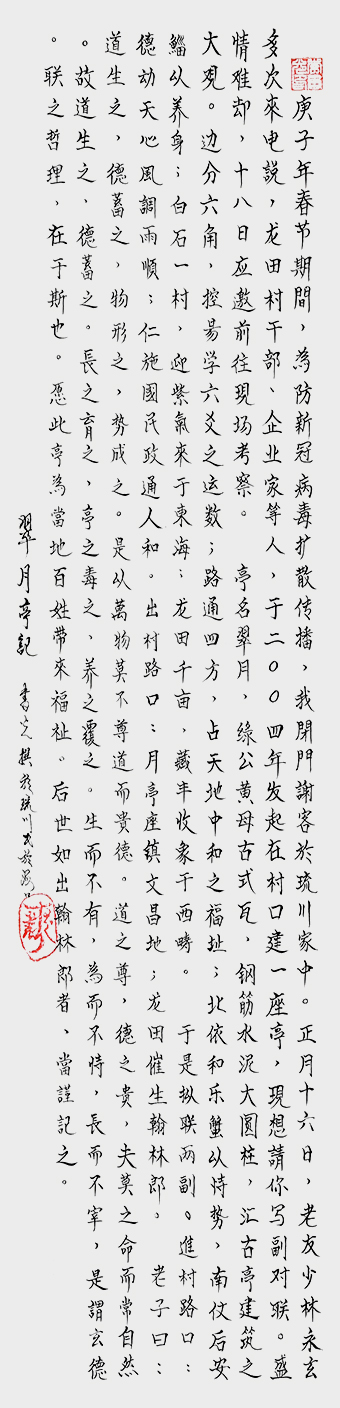 庚子年春节期間，為防新冠病毒扩散传播，我閉門謝客於琉川家中。正月十六日，老友少林永玄
多次來电説，龙田村干部、企业家等人，于二〇〇四年发起在村口建一座亭，現想請你写副对联。盛
情难却，十八日应邀前往現场考察。 亭名翠月，綠公黄母古式瓦，钢筋水泥大圆柱，汇古亭建筑之
大观。边分六角，控易学六爻之运数；路通四方，占天地中和之福址；北依和乐蟹以恃势，南仗后安
鯔以养身；白石一村，迎紫氣來于東海；龙田千亩，藏丰收象于西畴。 于是拟联两副。進村路口：
德动天心風調雨順；仁施國民政通人和。出村路口：月亭座鎮文昌地；龙田催生翰林郎。 老子曰：
道生之，德蓄之，物形之，势成之。是以萬物莫不尊道而贵德。道之尊，德之贵，夫莫之命而常自然
。故道生之，德蓄之。長之育之，亭之毒之，养之覆之。生而不有，為而不恃，長而不宰，是謂玄德
。联之哲理，在于斯也。愿此亭為當地百姓带來福祉。后世如出翰林郎者、當謹記之。
翠月亭記